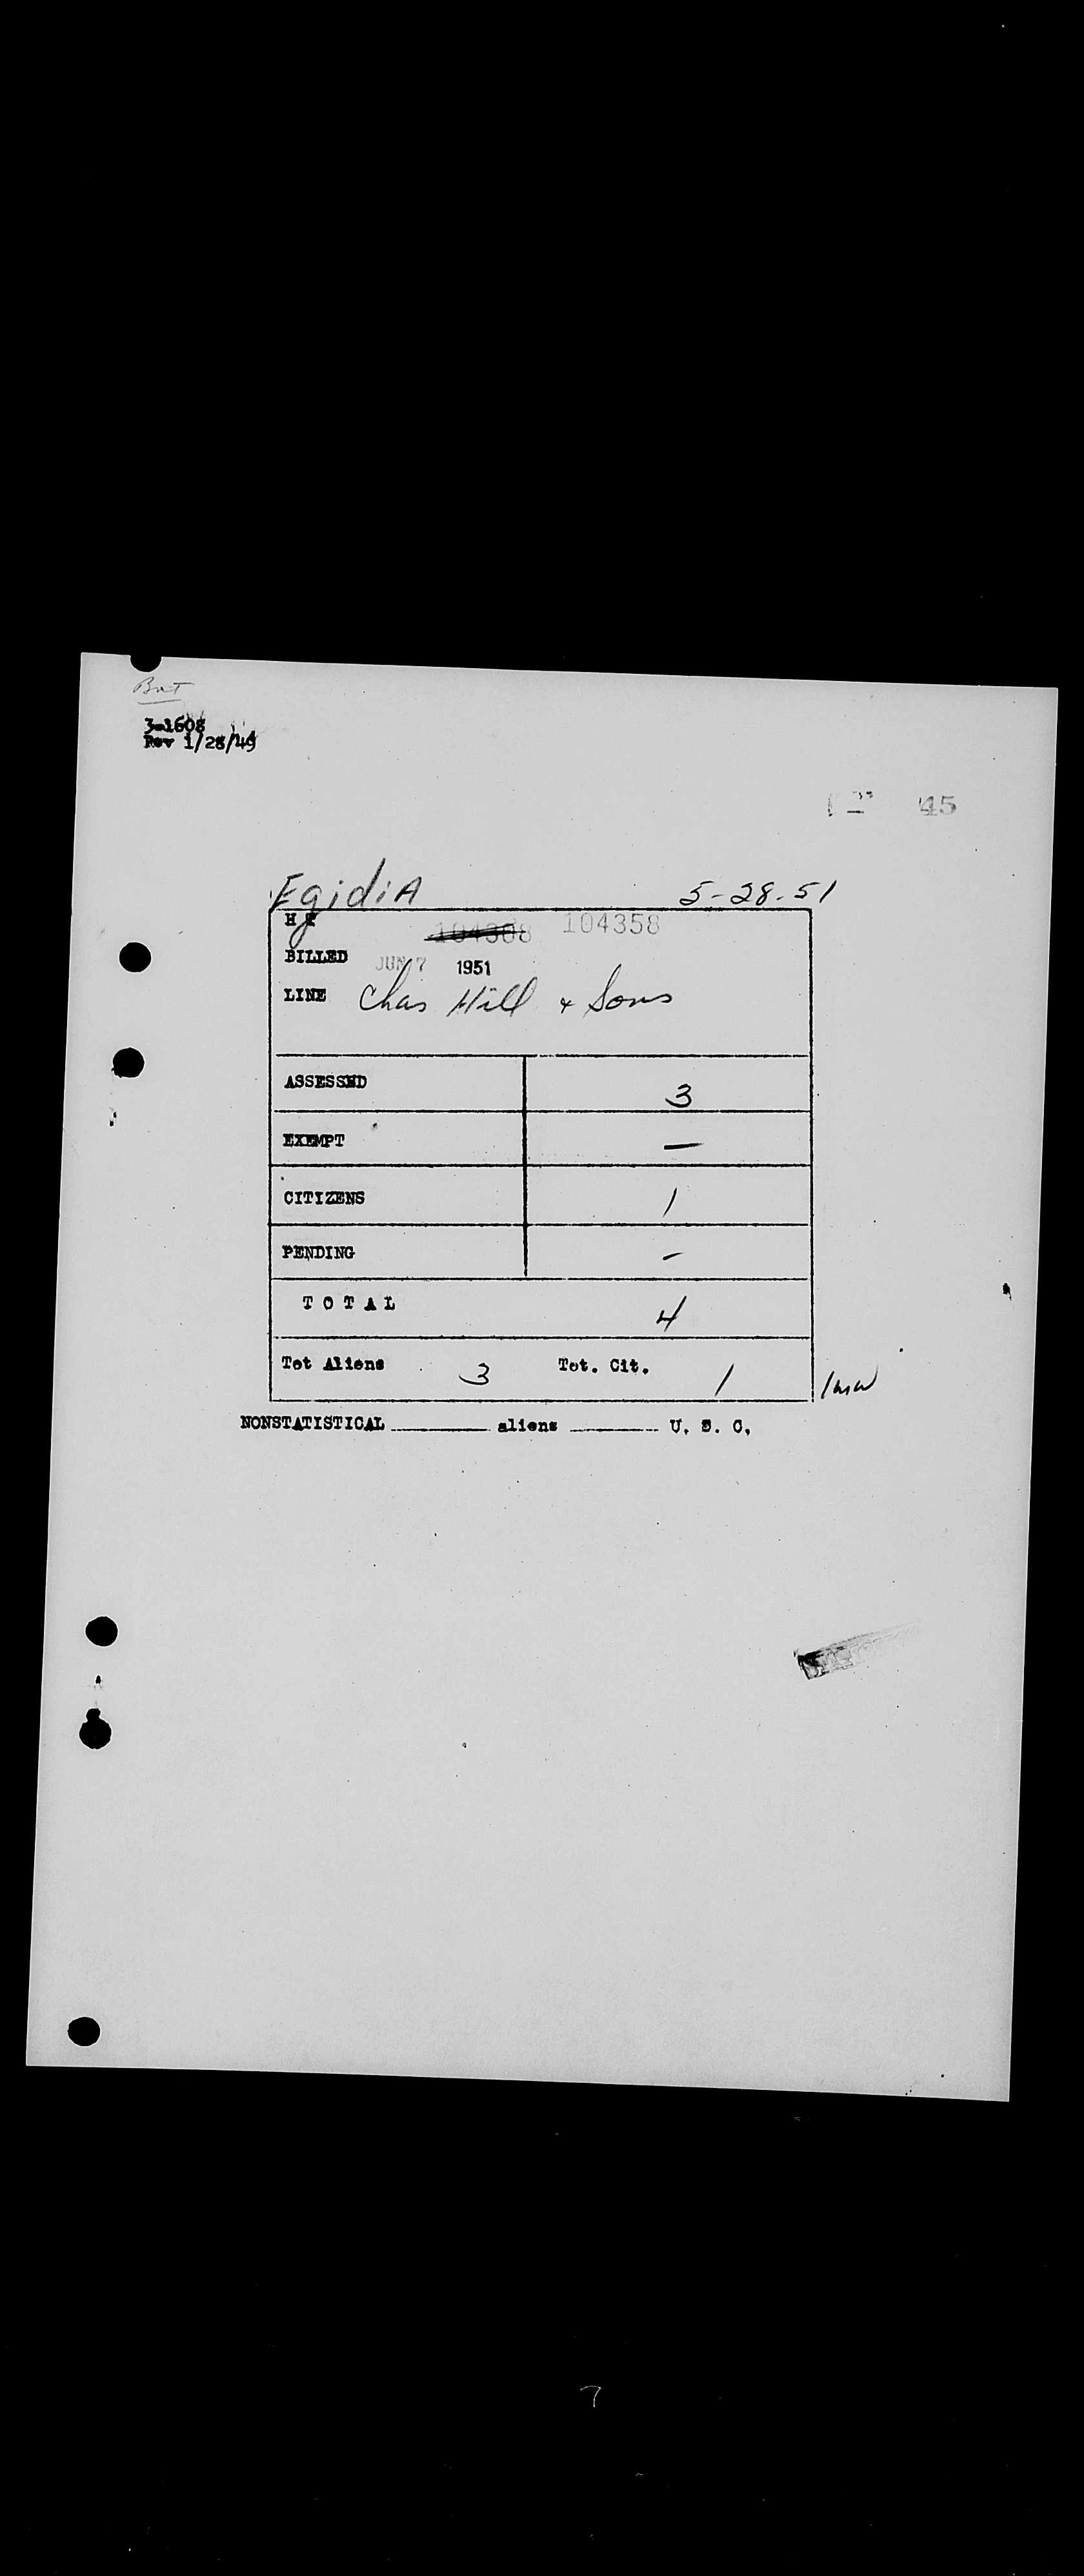 3-1608
Rev 1/28/49
45
EgidiA 5-28-51
H T 104308 104358
BILLED JUN 7 1951
LINE Chas Hill & Sons
ASSESSED 3
EXEMPT —
CITIZENS 1
PENDING -
TOTAL 4
Tot Aliens 3 Tot. Cit. 1
NONSTATISTICAL ________ aliens ________ U. S. C.
7